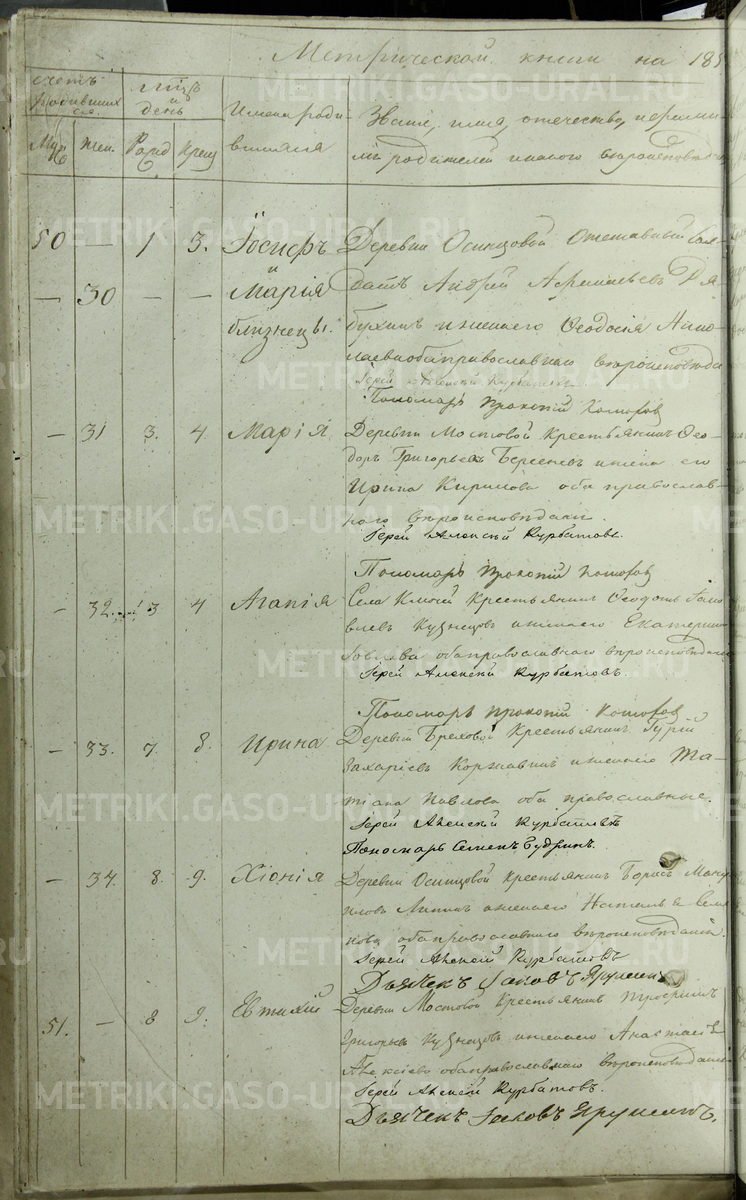 Метрической книги на 185
счетъ родившихся. лѣтъ и день Имена родившихся Званіе, имя, отечество, и фамилія родителей и какого вѣроисповѣданія
Муж. Жен. Рожд. Крещ.
50 — 1 3. Іосифъ Деревни Осинцовой Отставный Сол-
и
— 30 — — Марія датъ Андрей
близнецы. бухинъ и жена его Ѳеодосія
оба православнаго вѣроисповѣда
Іерей Алексѣй Курбатовъ.
Пономарь Прокопій Комаров
— 31 3. 4. Марія Деревни Мостовой Крестьянинъ Ѳео-
доръ Григорьевъ Берсеневъ и жена его
Ирина Кирилова оба православ-
наго вѣроисповѣданія.
Іерей Алексѣй Курбатовъ.
Пономарь Прокопій
— 32. 3 4 Агапія Села Ключи Крестьянинъ
Кузнецовъ и жена его Екатерина
оба православнаго вѣроисповѣданія
Іерей Алексѣй Курбатовъ.
Пономарь Прокопій
— 33. 7. 8. Ирина Деревни Бреховой Крестьянинъ Гурій
Захаріевъ Коржавинъ и жена его Та-
тіана Павлова оба православные.
Іерей Алексѣй Курбатовъ
Пономарь Семенъ Будринъ.
— 34. 8. 9. Хіонія Деревни Осинцовой Крестьянинъ Борисъ Ману
иловъ Липинъ и жена его Наталья Семе
нова оба православнаго вѣроисповѣданія.
Іерей Алексѣй Курбатовъ
Дьячекъ Іаковъ
51. — 8 9. Евтихій Деревни Мостовой Крестьянинъ
Григорьевъ Кузнецовъ и жена его Анастасія
Алексіева оба православнаго вѣроисповѣданія
Іерей Алексѣй Курбатовъ.
Дьячекъ Іаковъ
METRIKI.GASO-URAL.RU